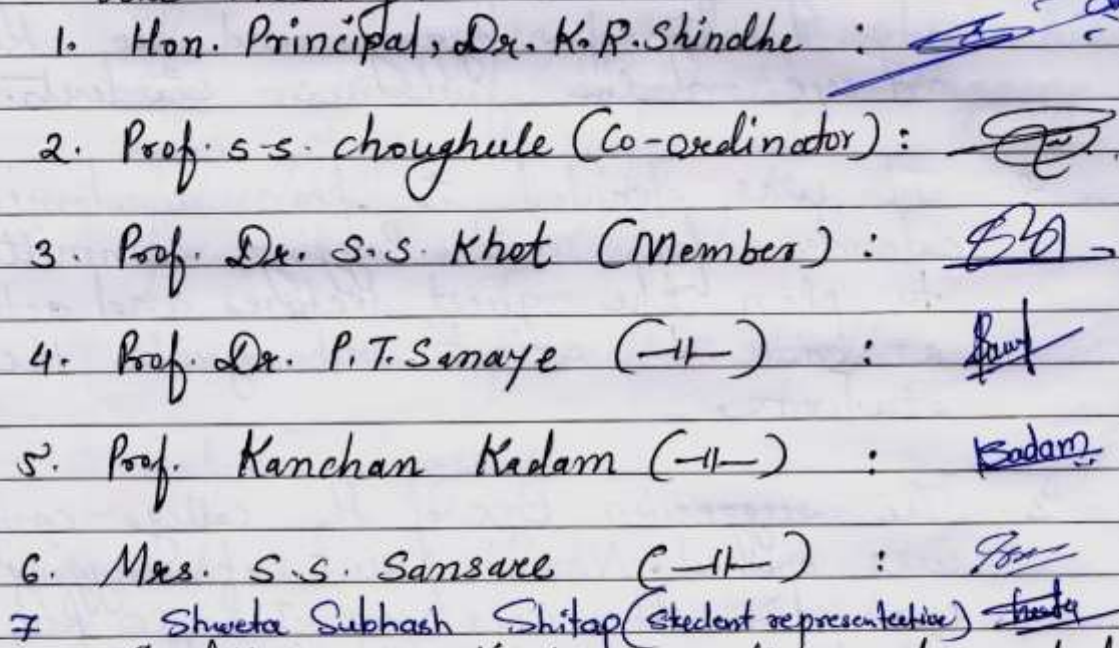 1. Hon. Principal, Dr. K.R. Shindhe :
2. Prof. S.S. choughule (Co-ordinator) :
3. Prof. Dr. S.S. Khot (Member) :
4. Prof. Dr. P.T. Sanaye (—11—) :
5. Prof. Kanchan Kadam (—11—) : Kadam
6. Mrs. S.S. Sansare (—11—) :
7 Shweta Subhash Shitap (Student representative)